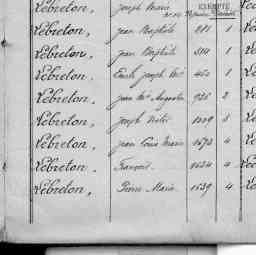 Lebreton, Joseph Marie
EXEMPTÉ
Lebreton, Jean Baptiste 881 1
Lebreton, Jean Baptiste 884 1
Lebreton, Emile Joseph Mie 465 1
Lebreton, Jean Mie Augustin 926 2
Lebreton, Joseph Victor 1009 3
Lebreton, Jean Louis Marie 1673 4
Lebreton, François 1624 4
Lebreton, Pierre Marie 1639 4